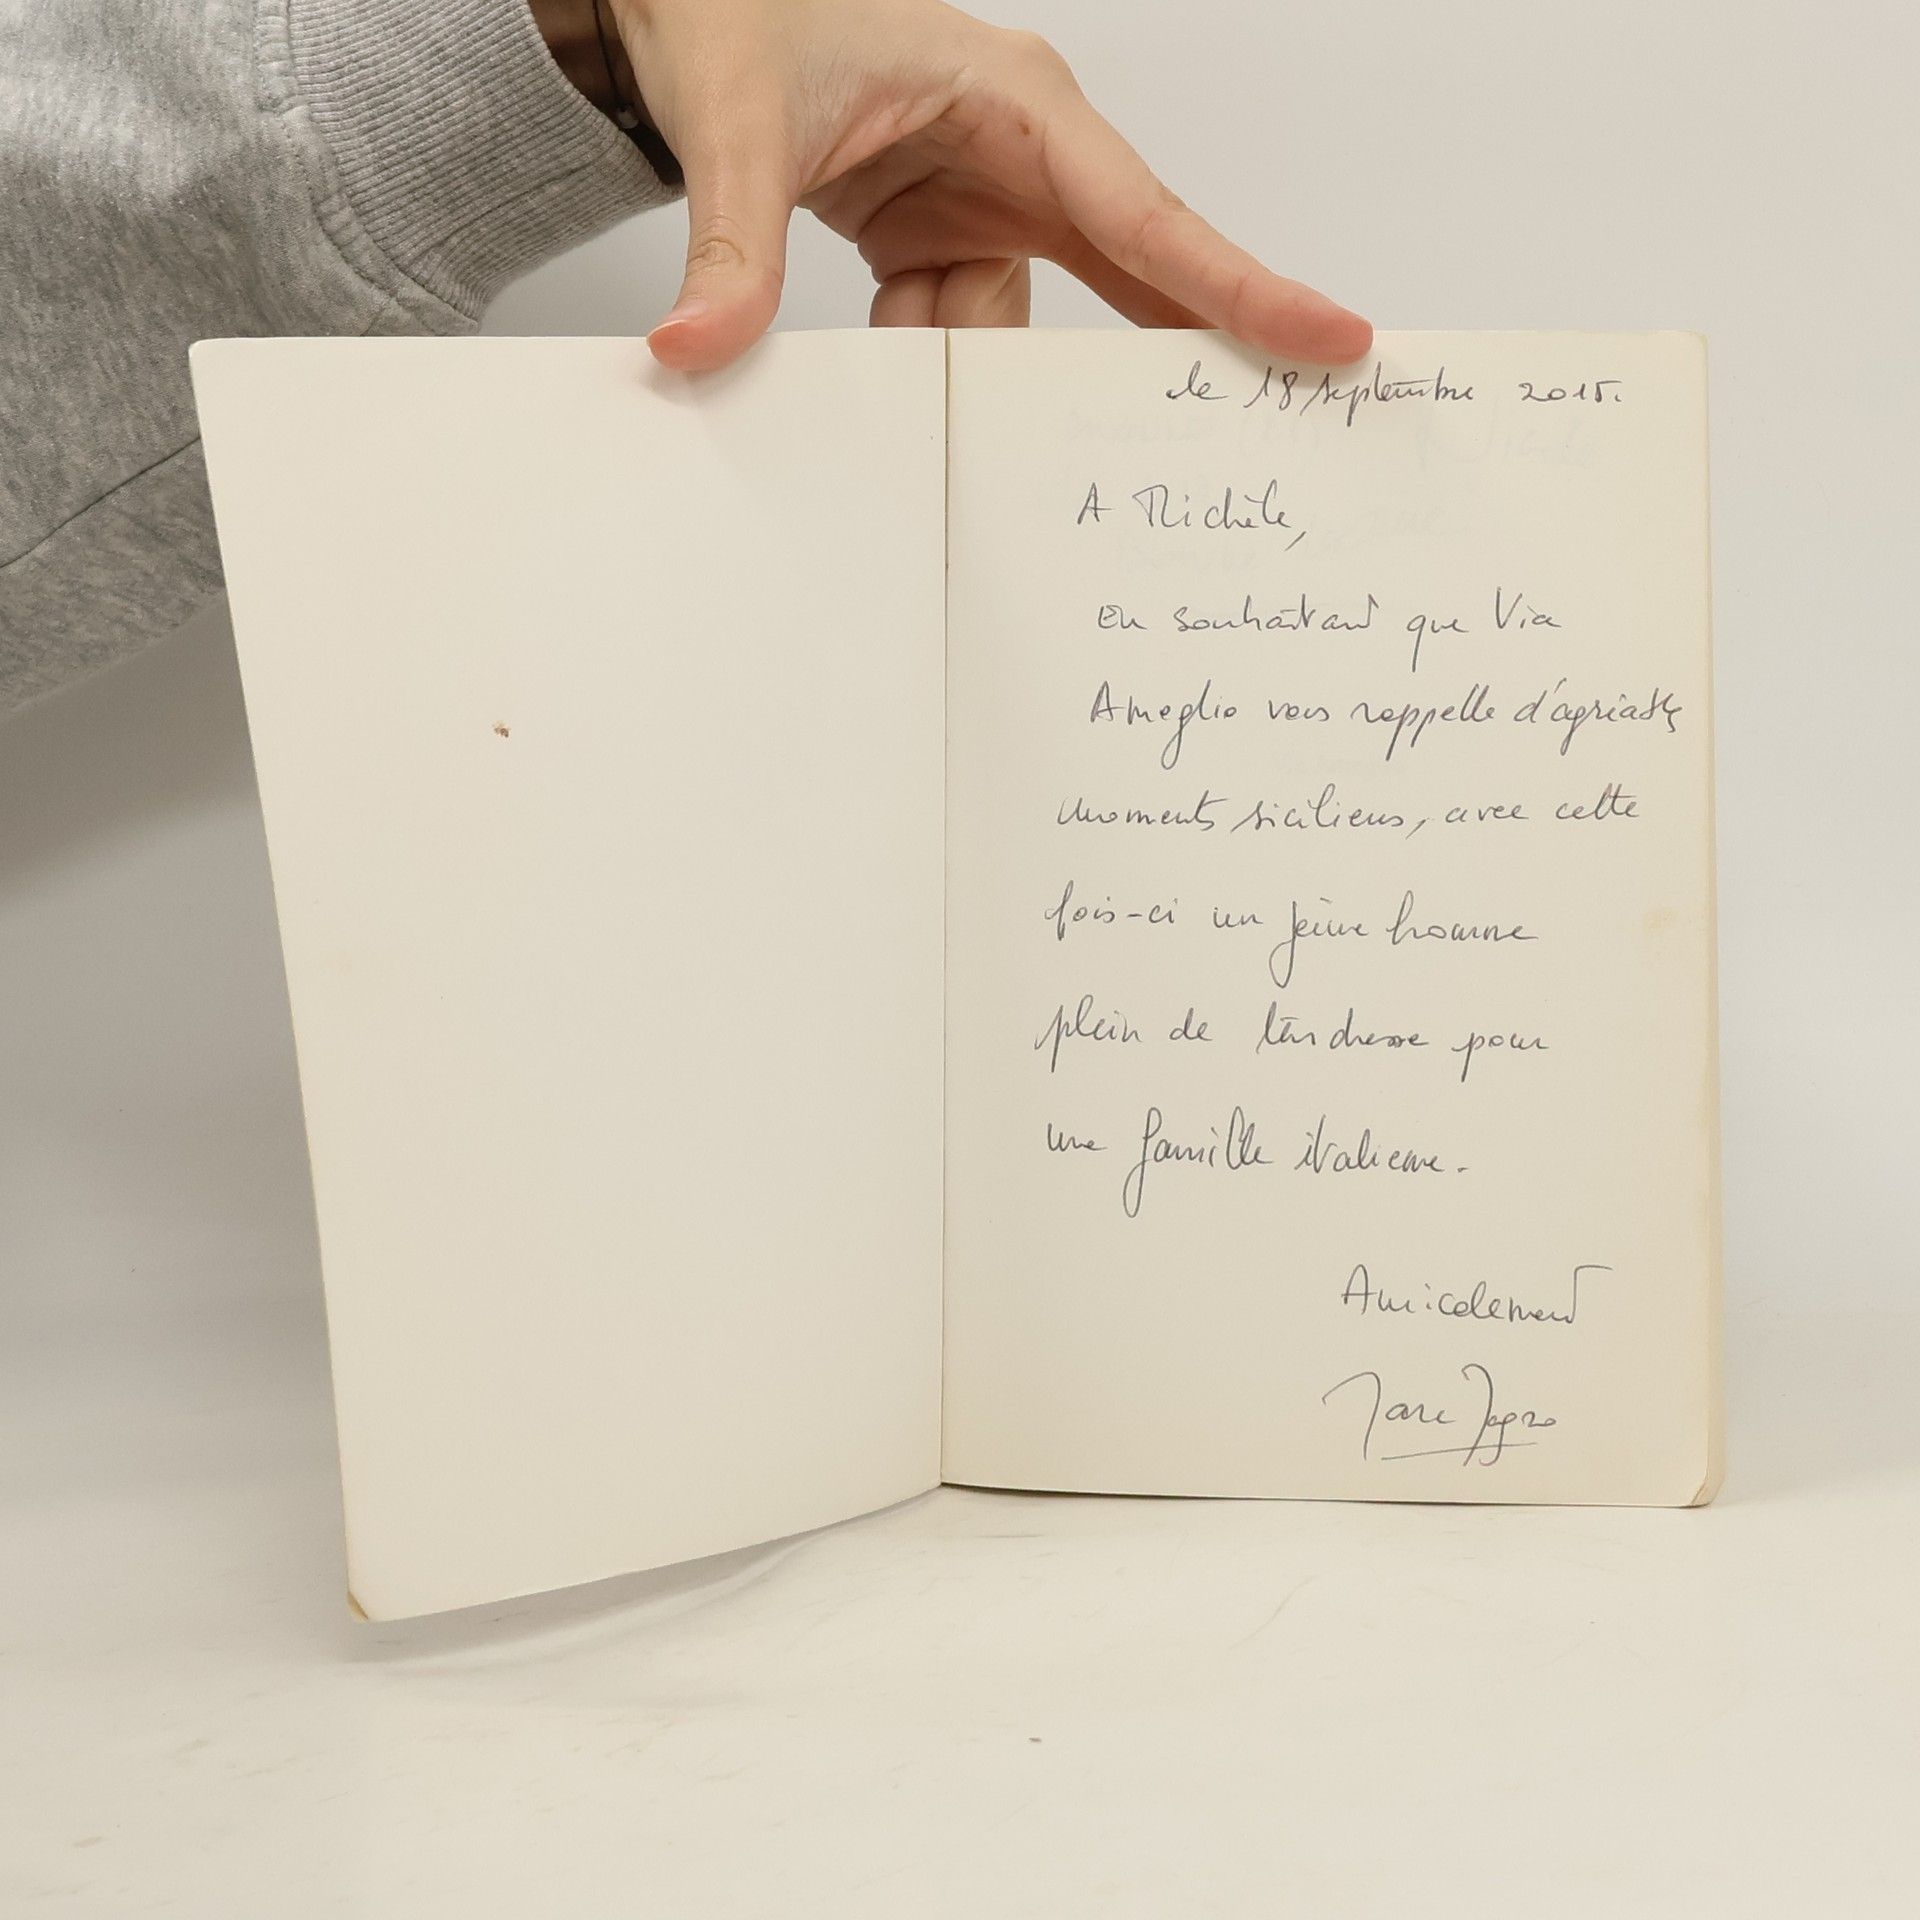 le 18 septembre 2015.
A Michèle,
En souhaitant que Via
Ameglio vous rappelle d'agréables
moments siciliens, avec cette
fois-ci un jeune homme
plein de tendresse pour
une famille italienne.
Amicalement